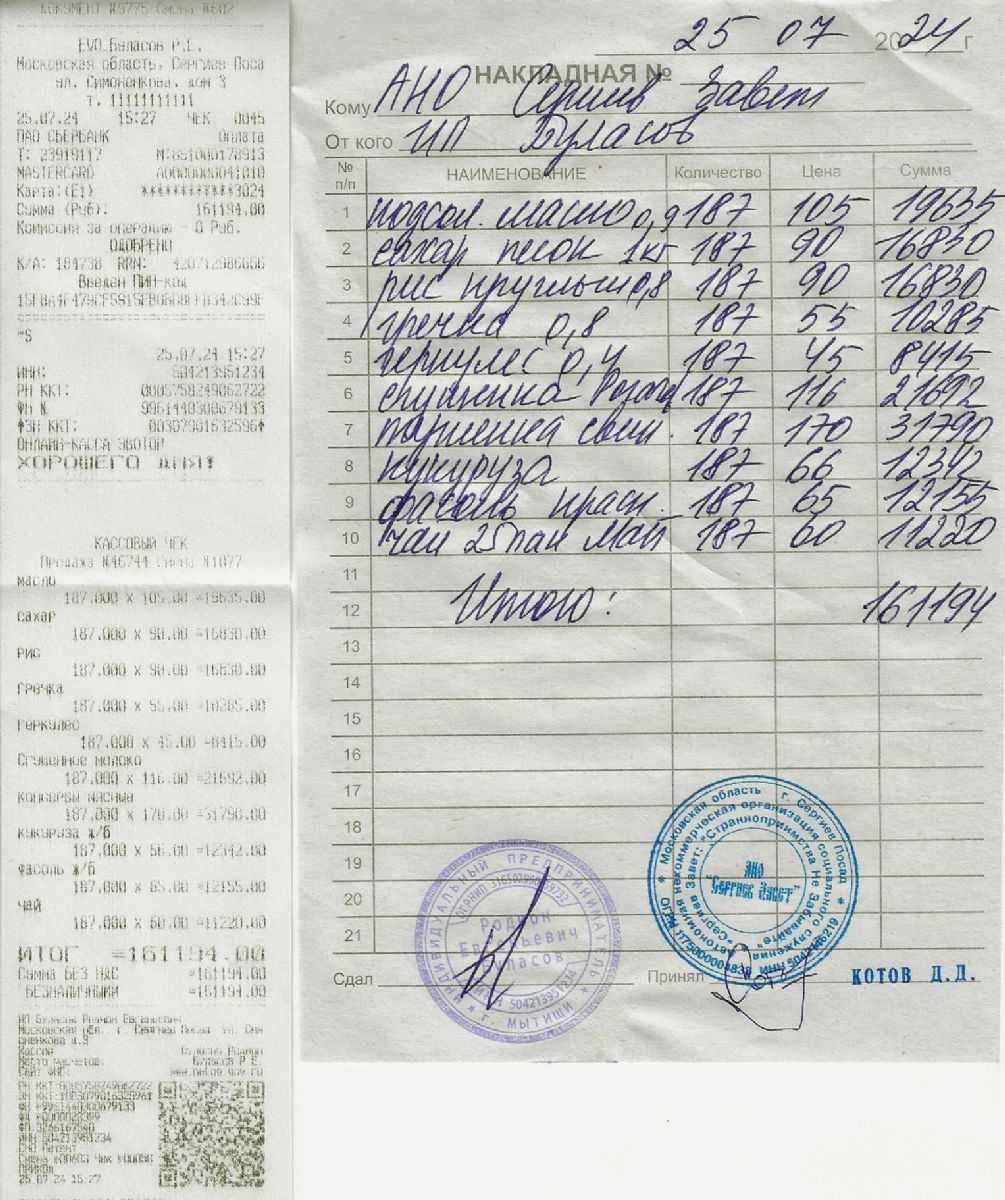 ДОКУМЕНТ №9775 Смена №602
EVO_Буласов Р.Е.
Московская область, Сергиев Поса
ул. Симоненкова, дом 3
т. 11111111111
25.07.24 15:27 ЧЕК 0045
ПАО СБЕРБАНК Оплата
Т: 23919117 М:851000178913
MASTERCARD A0000000041010
Карта:(E1) ************3024
Сумма (Руб): 161194.00
Комиссия за операцию - 0 Руб.
ОДОБРЕНО
К/А: 184738 RRN: 420712986666
Введен ПИН-код
*S
25.07.24 15:27
ИНН: 504213951234
РН ККТ: 0005758249062722
ФН № 9961440300679133
ЗН ККТ: 00307901632596
ОНЛАЙН-КАССА ЭВОТОР
ХОРОШЕГО ДНЯ!
КАССОВЫЙ ЧЕК
Продажа №46744 Смена №1077
масло
187.000 x 105.00 =19635.00
сахар
187.000 x 90.00 =16830.00
рис
187.000 x 90.00 =16830.00
гречка
187.000 x 55.00 =10285.00
геркулес
187.000 x 45.00 =8415.00
Сгущенное молоко
187.000 x 116.00 =21692.00
консервы мясные
187.000 x 170.00 =31790.00
кукуруза ж/б
187.000 x 66.00 =12342.00
фасоль ж/б
187.000 x 65.00 =12155.00
чай
187.000 x 60.00 =11220.00
ИТОГ =161194.00
Сумма БЕЗ НДС =161194.00
БЕЗНАЛИЧНЫМИ =161194.00
ИП Буласов Родион Евгеньевич
Московская обл. г. Сергиев Посад ул. Сим
оненкова д.3
Кассир Буласов Родион
Место расчетов: Буласов Р.Е.
Сайт ФНС: www.nalog.gov.ru
РН ККТ 0005758249062722
ФН №9961440300679133
ИНН 504213951234
СНО Патент
ПРИХОД
25 07 24 15:27
25 07 2024 г
НАКЛАДНАЯ №
Кому АНО Сергиев Завет
От кого ИП Буласов
№ п/п НАИМЕНОВАНИЕ Количество Цена Сумма
1 подсол. масло 0,9 187 105 19635
2 сахар песок 1кг 187 90 16830
3 рис круглый 0,8 187 90 16830
4 гречка 0,8 187 55 10285
5 геркулес 0,4 187 45 8415
6 сгущенка 187 116 21692
7 тушенка свин. 187 170 31790
8 кукуруза 187 66 12342
9 фасоль красн. 187 65 12155
10 чай 25пак Май 187 60 11220
11
12 Итого: 161194
13
14
15
16
17
18
19
20
21
Сдал Принял КОТОВ Д.Д.
ИНДИВИДУАЛЬНЫЙ ПРЕДПРИНИМАТЕЛЬ
Родион
Евгеньевич
Буласов
ИНН 504213951234
* г. МЫТИЩИ *
* Московская область г. Сергиев Посад *
Автономная некоммерческая организация социального служения
"Сергиев Завет: "Странноприимства Не Забывайте"
АНО
"Сергиев Завет"
ОГРН 1175000004838 ИНН 5042146219